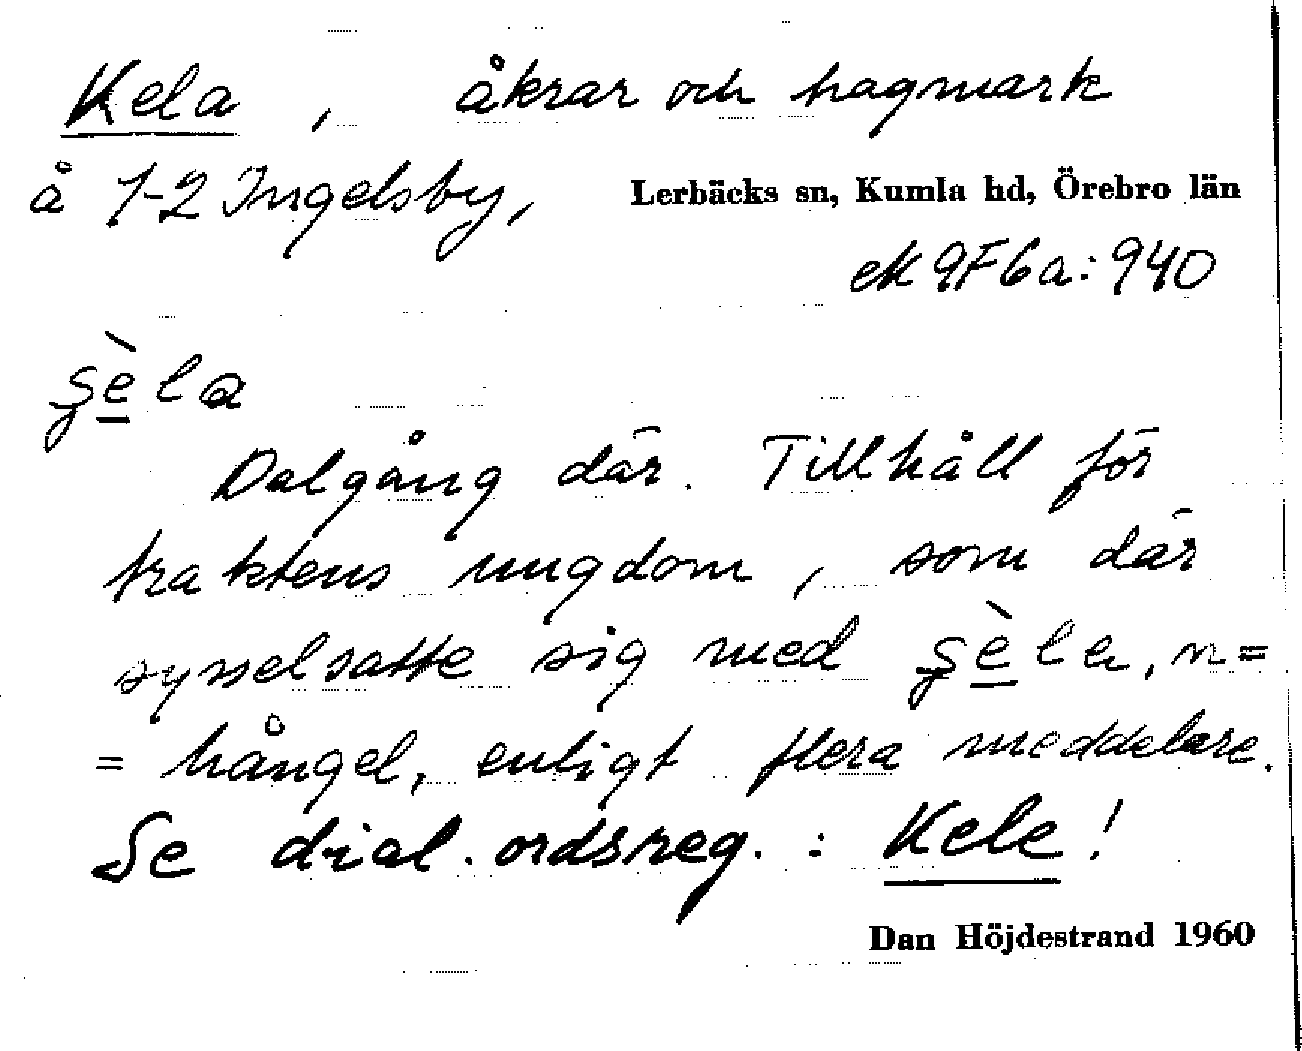 Kela, åkrar och hagmark
å 1-2 Ingelsby, Lerbäcks sn, Kumla hd, Örebro län
ek 9F6a:940
ʂèla
Dalgång där. Tillhåll för
traktens ungdom, som där
sysselsatte sig med ʂèla, n=
= hångel, enligt flera meddelare.
Se dial. ordsreg. : Kele!
Dan Höjdestrand 1960